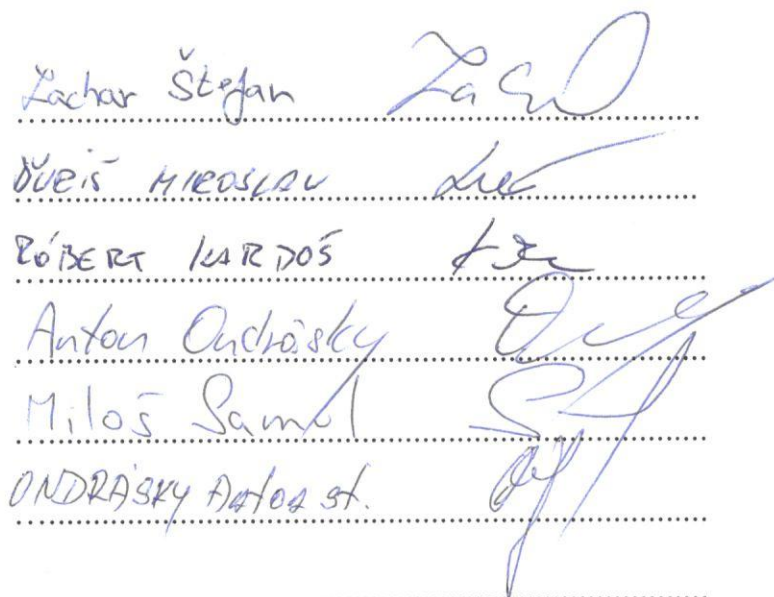 Zachar Štefan
ĎURIŠ MIROSLAV
RÓBERT KARDOŠ
Anton Ondrásky
Miloš Samol
ONDRÁSKY Anton st.